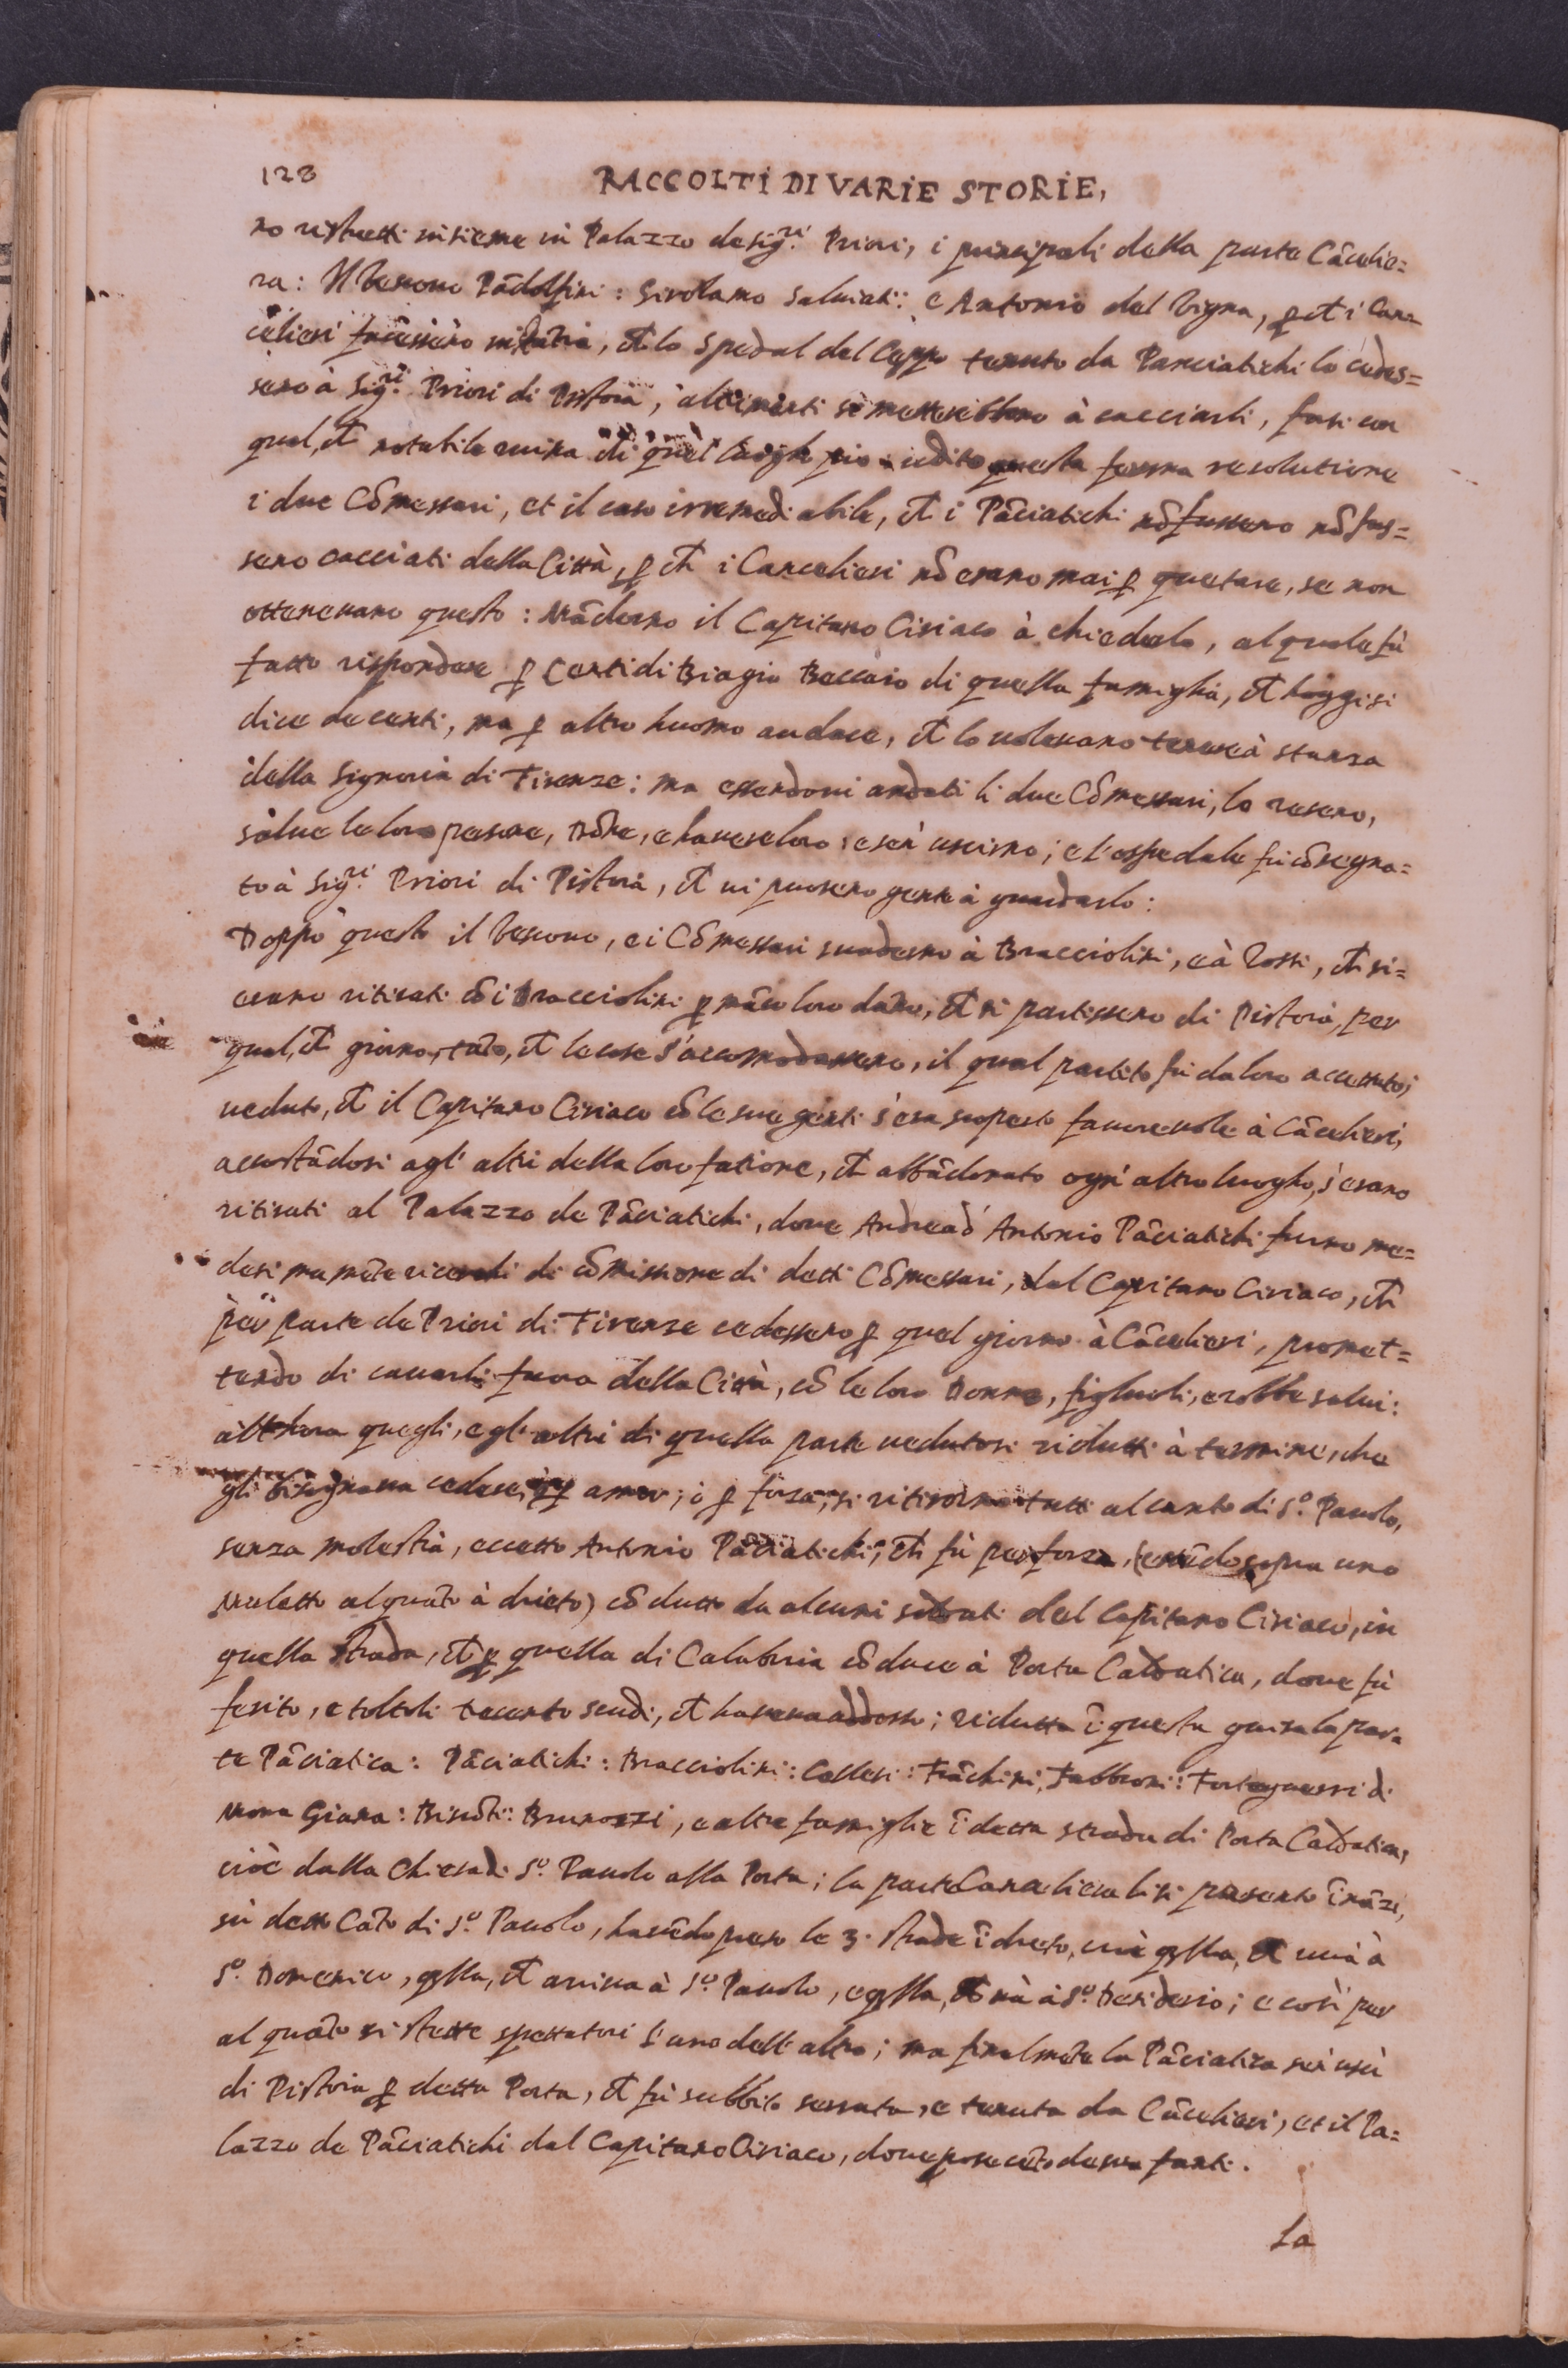 128
RACCOLTI DI VARIE STORIE,
no ristretti insieme in Palazzo de sig.ri Priori, i principali della parte Cãcelie=
ra: Il Vescovo Pãdolfini: Girolamo Salviati: e Antonio del Vigna, ꝑ ch̃ i Can=
celieri facessero, ch̃ lo Spedal del Ceppo tenuto da Panciatichi lo cedes=
sero à Sig.ri Priori di Pistoia, altrimenti si metterebbono à cacciarli, fusi con
qual, ch̃ notabile ruina di quel luogho pio: udito questa ferma resolutione
i due Cõmessari, et il caso irremediabile, ch̃ i Pãciatichi nõ fussero nõ fus=
sero cacciati della Città, ꝑ ch̃ i Cancelieri nõ erano mai ꝑ quetare, se non
ottenevano questo: Mãdorno il Capitano Ciriaco à chiederlo, al quale fù
fatto rispondere ꝑ Certi di Biagio Beccaio di quella famiglia, ch̃ hoggi si
dice de certi, ma ꝑ altro huomo audace, ch̃ lo volevano tenere à stanza
della Signoria di Firenze: ma essendovi andati li due Cõmessari, lo resero,
salve le loro persone, Dõne, e havere loro, e sen' uscirno; e l'ospedale fù cõsegna=
to à Sig.ri Priori di Pistoia, ch̃ vi puosero gente à guardarlo:
Doppo questo il Vescovo, e i Cõmessari suaderno à Bracciolini, e à Rossi, ch̃ si=
erano ritirati cõ i Bracciolini ꝑ mãco loro dãno, ch̃ si partissero di Pistoia, per
qual, ch̃ giorno, tãto, ch̃ le cose s'accomodassero, il qual partito fù da loro accettato;
veduto, ch̃ il Capitano Ciriaco cõ le sue genti s'era scoperto favorevole à Cãcelieri,
accostãdosi agl' altri della loro fatione, ch̃ abbãdonato ogn' altro luogho, s'erano
ritirati al Palazzo de Pãciatichi, dove Andrea d' Antonio Pãciatichi furno me=
desimamẽte ricerchi di cõmissione di detti Cõmessari, dal Capitano Ciriaco, ch̃
per parte de Priori di Firenze cedessero ꝑ quel giorno à Cãcelieri, promet=
tendo di cavarli fuora della Città, cõ le loro Donne, figluoli, e robbe salvi:
allhora quegli, e gl' altri di quella parte vedutosi ridutti à termine, che
gli bisognava cedere, ò ꝑ amor, ò ꝑ forza, si ritirorno tutti al canto di S.º Pavolo,
senza molestia, eccetto Antonio Pãciatichi, ch̃ fù per forza, (essẽdo sopra uno
Muletto alquãto à drieto) cõdutto da alcuni soldati del Capitano Ciriaco, in
quella strada, ch̃ ꝑ quella di Calabria cõduce à Porta Caldatica, dove fù
ferito, e toltoli trecento scudi, ch̃ haveva addosso; ridutta ĩ questa guisa la par=
te Pãciatica: Pãciatichi: Bracciolini: Cellesi: Frãchini, Fabbroni: Forteguerri di
Mona Giana: Visdõti: Brunozzi, e altre famiglie ĩ detta strada di Porta Caldatica,
cioè dalla Chiesa di S.º Pavolo alla Porta; la parte Canceliera li si presentò ĩnãzi,
sù detto Cãto di S.º Pavolo, havẽdo preso le 3. strade ĩ drieto, cioè q̃lla, ch̃ và à
S.º Domenico, q̃lla, ch̃ arriva à S.º Pavolo, e q̃lla, ch̃ và à S.º Desiderio; e così per
al quãto si stette spettatori l'uno dell' altro; ma finalmẽte la Pãciatica sen' uscì
di Pistoia ꝑ detta Porta, ch̃ fù subbito serrata, e tenuta da Cãcelieri, et il Pa=
lazzo de Pãciatichi dal Capitano Ciriaco, dove pose cẽto de sua fanti.
La